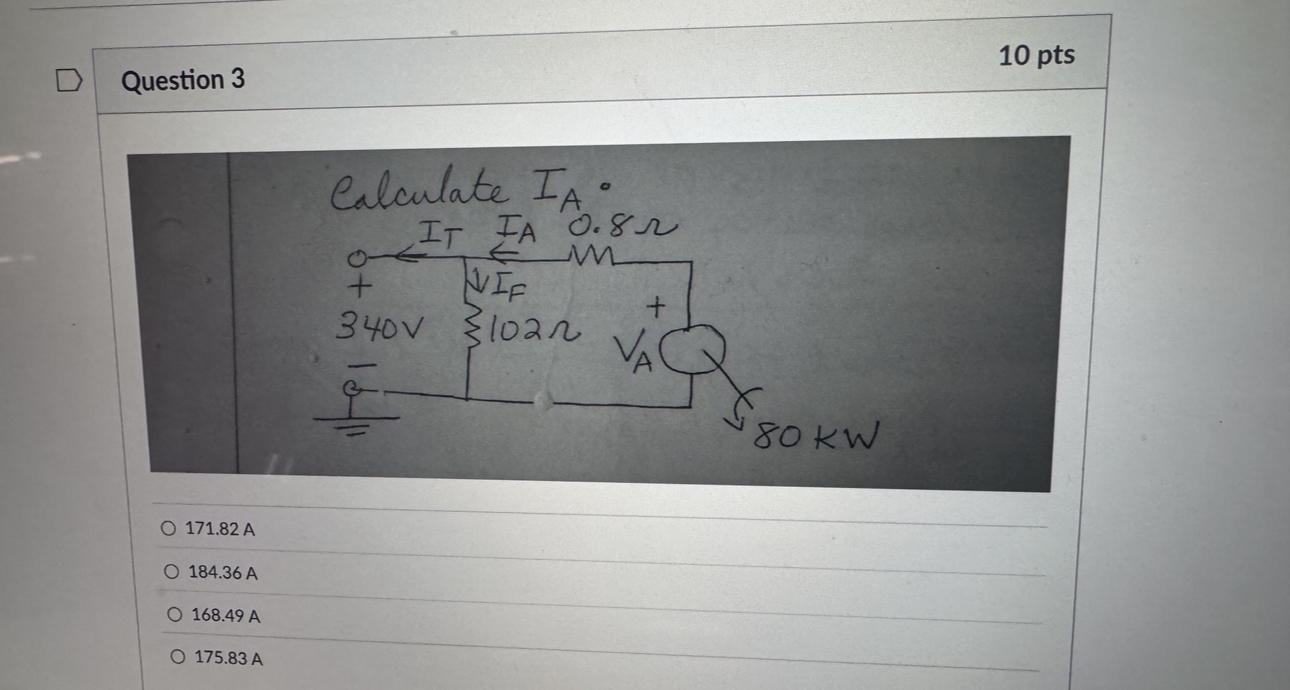 Question 3
10 pts
Calculate IA.
IT IA 0.8Ω
+
IF
340V 102Ω
+
VA
−
80 KW
171.82 A
184.36 A
168.49 A
175.83 A